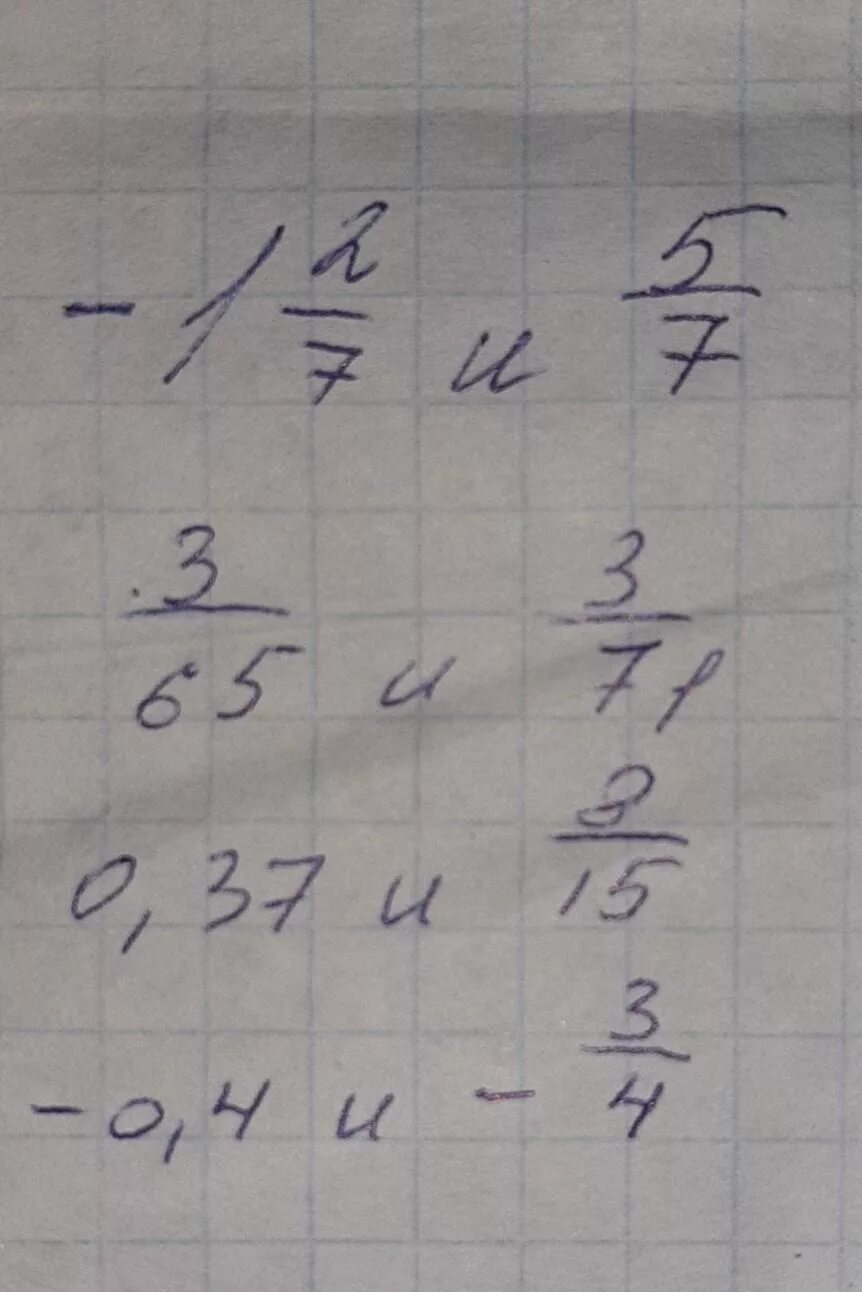 -1 2/7 и 5/7
3/65 и 3/71
0,37 и 8/15
-0,4 и - 3/4